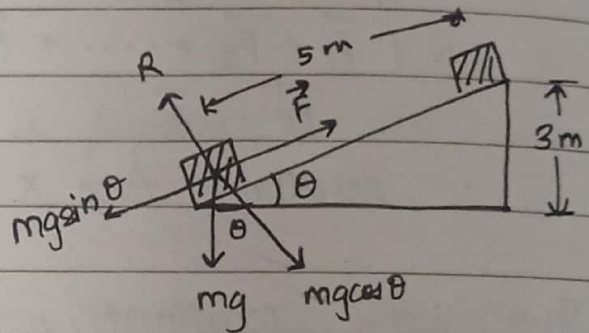 5 m
R
F⃗
3m
θ
mg sinθ
θ
mg
mg cosθ